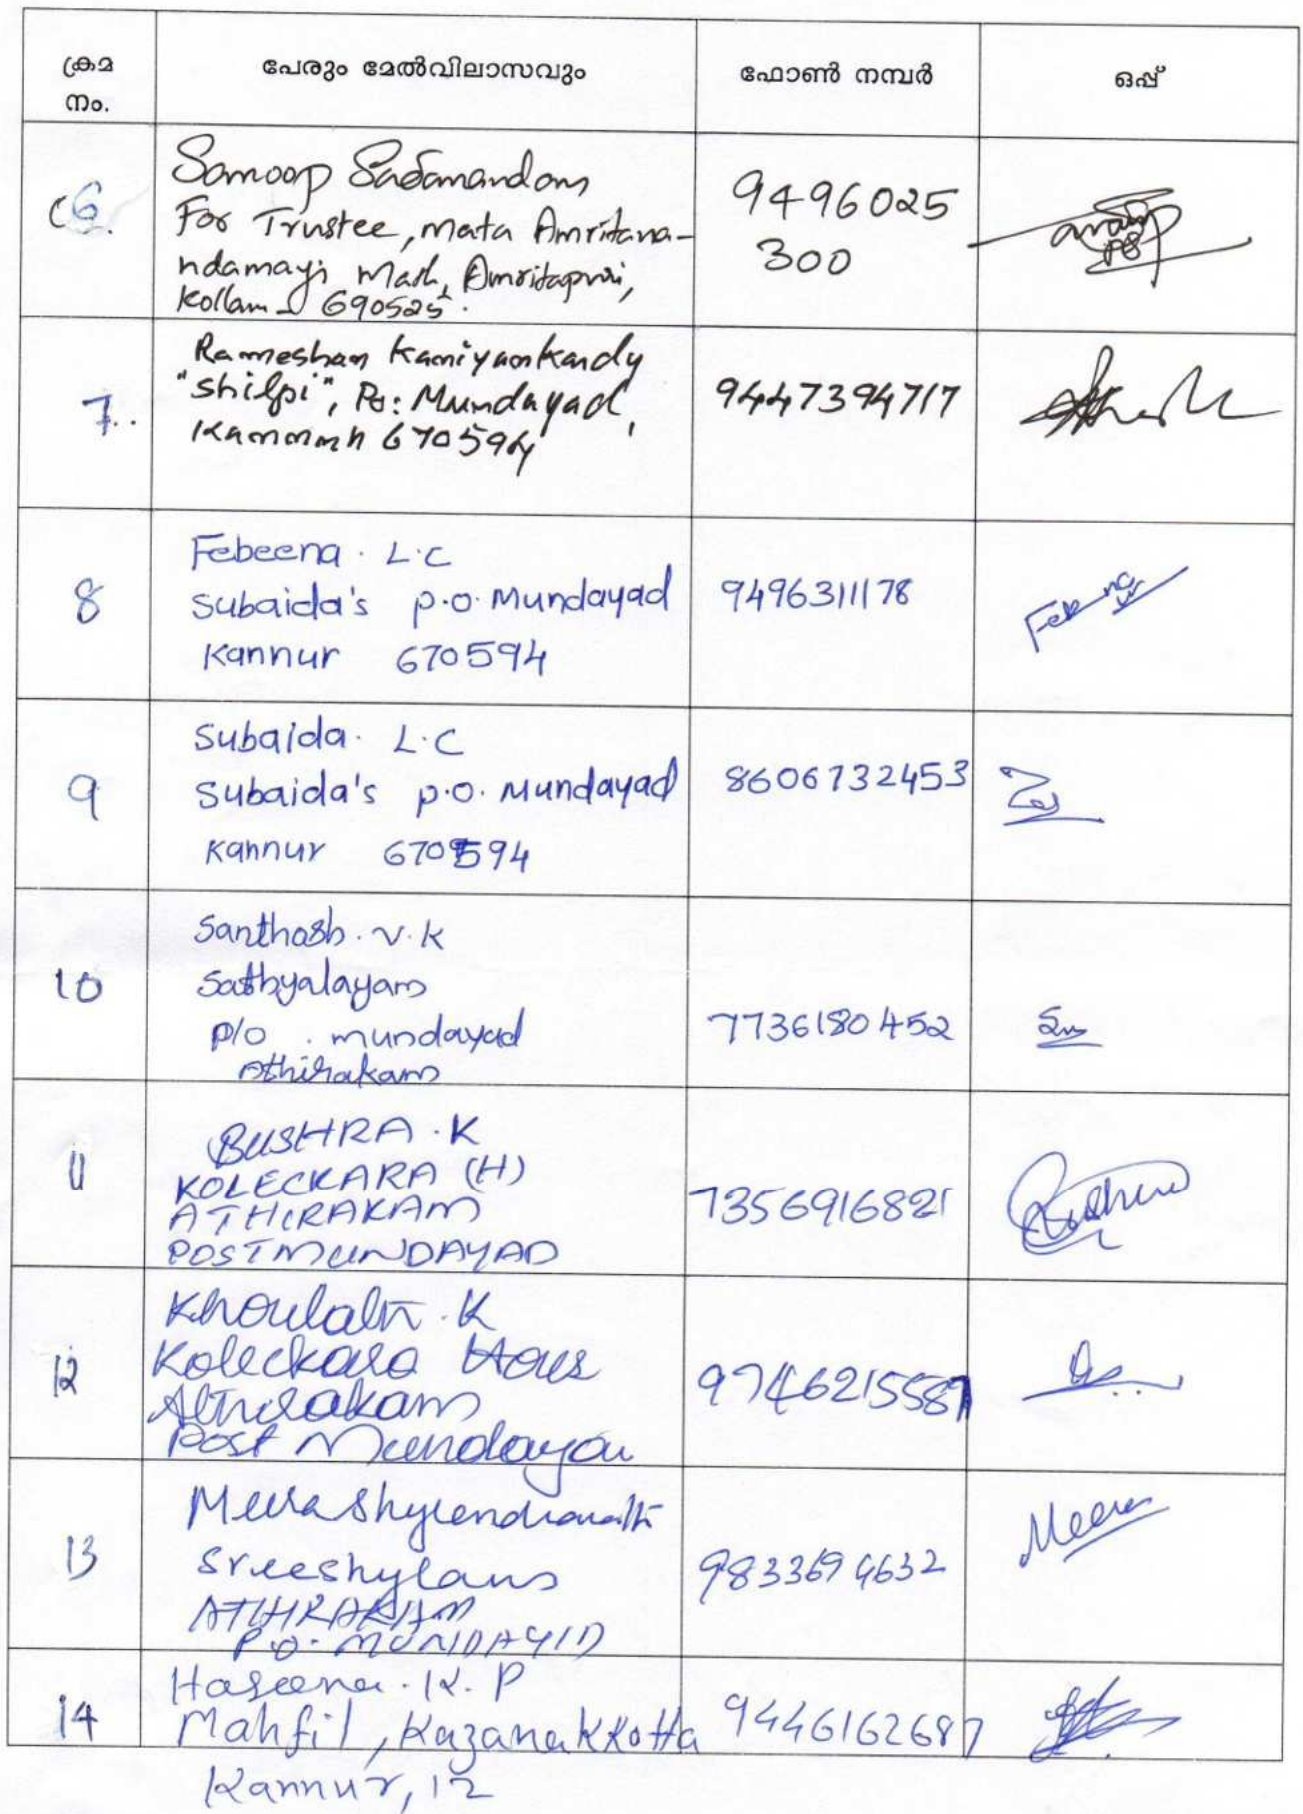 ക്രമ നം. പേരും മേൽവിലാസവും ഫോൺ നമ്പർ ഒപ്പ്
6. Sanoop Sadanandan
For Trustee, Mata Amritana-
ndamayi Math, Amritapuri,
Kollam - 690525.
9496025
300
7. Rameshan Kaniyankandy
"Shilpi", Po: Mundayad,
Kannur 670594
9447394717
8 Febeena. L.C
Subaida's p.o. Mundayad
Kannur 670594
9496311178
Febeena
9 Subaida. L.C
Subaida's p.o. Mundayad
Kannur 670594
8606732453
10 Santhosh. V. K
Sathyalayam
P/o . mundayad
Athirakam
7736180452
11 BUSHRA. K
KOLECKARA (H)
ATHIRAKAM
POST MUNDAYAD
7356916821
Bushra
12 Khoulath. K
Koleckara Hous
Athirakam
Post Mundayad
9746215587
13 Meera Shylendranath
Sreeshylam
ATHIRAKAM
P.O. MUNDAYAD
9833694632
Meera
14 Haseena. K. P
Mahfil, Kazanakkotta
Kannur, 12
9446162687